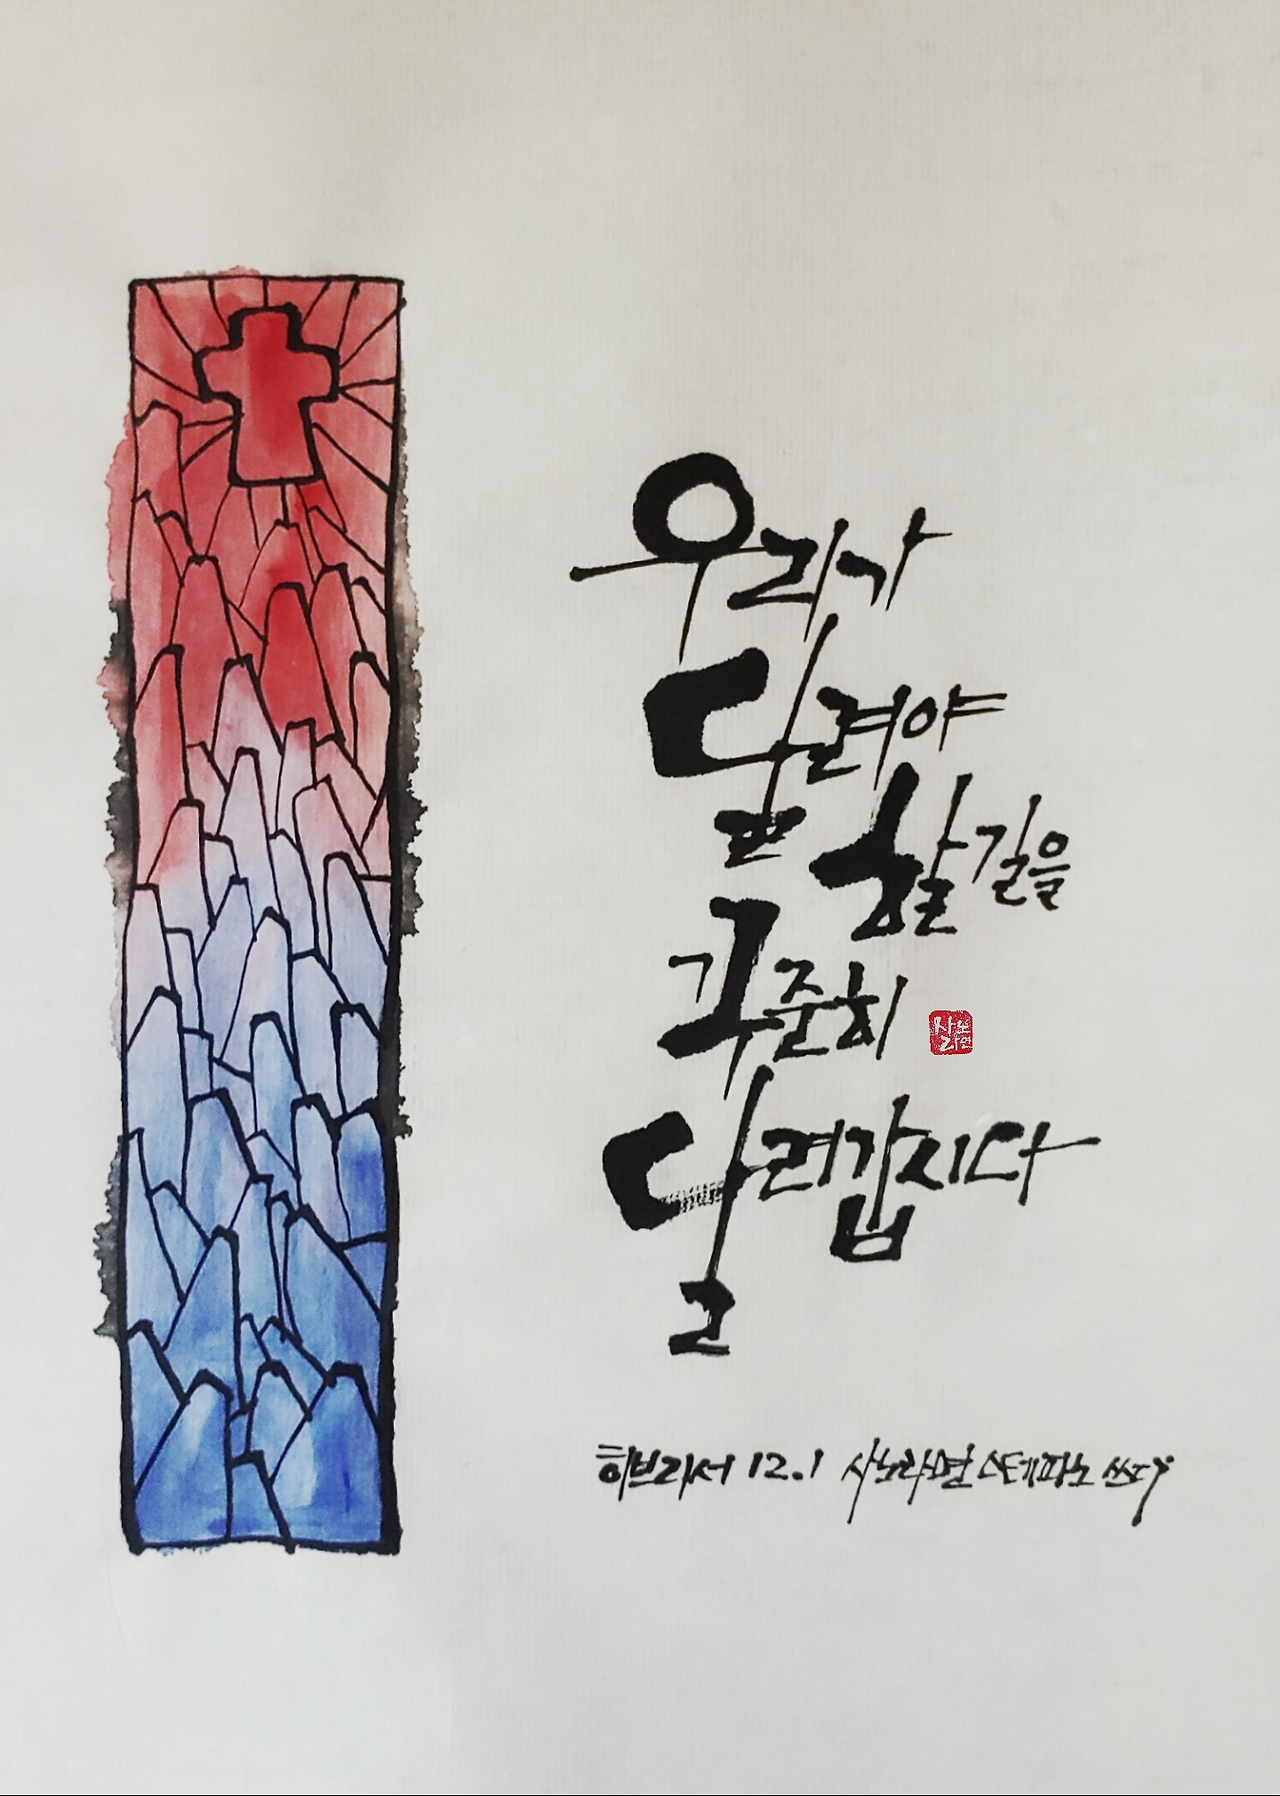 우리가
달려야
할 길을
꾸준히
사노
라면
달려갑시다
히브리서 12.1 사노라면 스테파노 쓰다